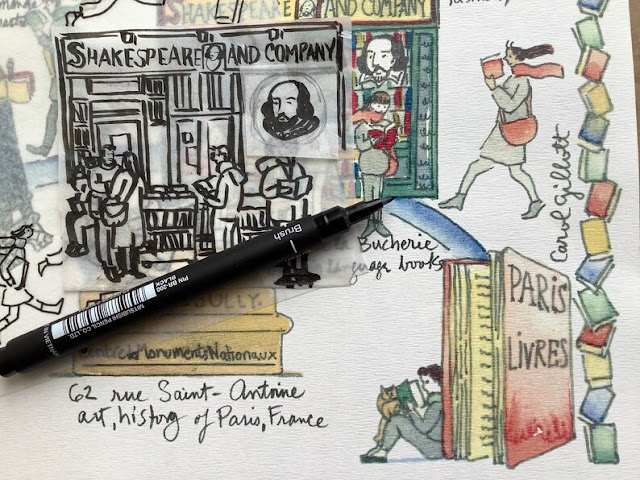 SHAKESPEARE AND COMPANY
SHAKESPEARE AND COMPANY
Brush
PIN BR-200
BLACK
MITSUBISHI PENCIL CO., LTD
Bucherie
language books
SULLY.
Centre des Monuments Nationaux
62 rue Saint-Antoine
art, history of Paris, France
PARIS
LIVRES
Carol Gillott